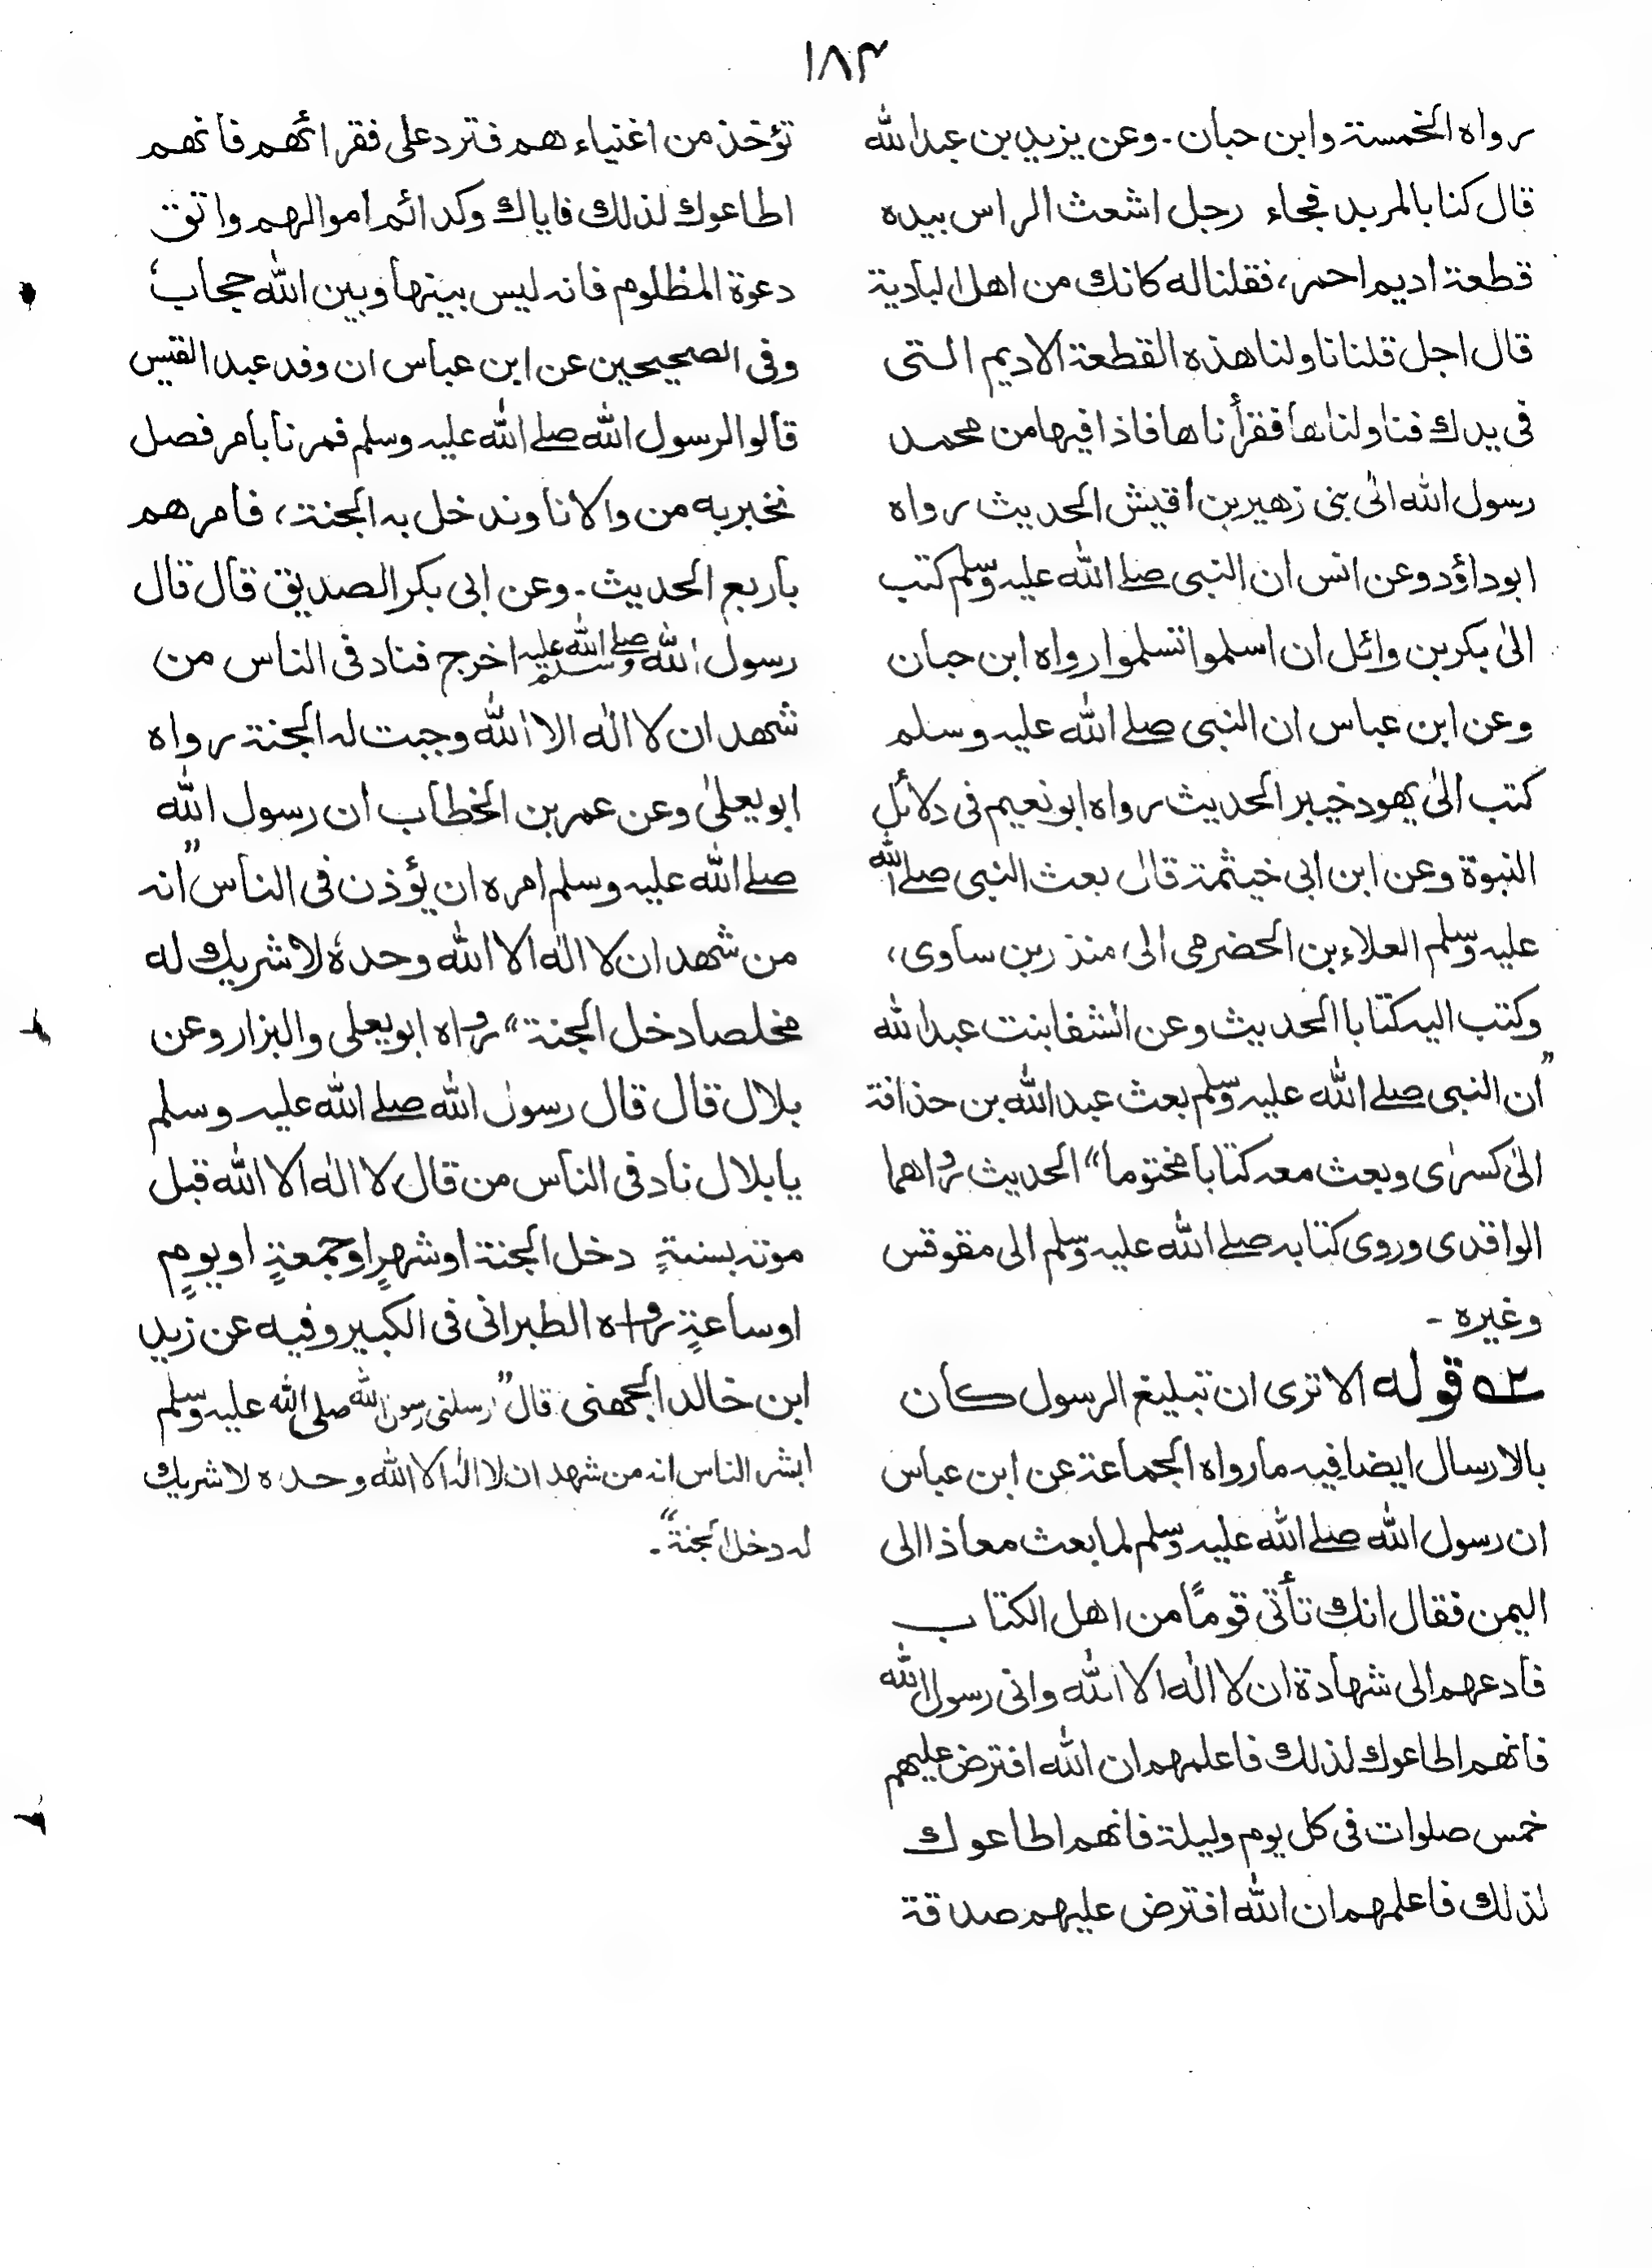 ١٨٣
رواه الخمسة وابن حبان۔ وعن يزيد بن عبدالله
قال كنا بالمربد فجاء رجل اشعث الراس بيده
قطعة اديم احمر، فقلنا له كانك من اهل البادية
قال اجل قلنا ناولنا هذه القطعة الاديم التى
فى يدك فناولناها فقرأناها فاذا فيها من محمد
رسول الله الىٰ بنى زهير بن اقيش الحديث رواه
ابوداؤد وعن انس ان النبى صلے الله عليه وسلم كتب
الىٰ بكر بن وائل ان اسلموا تسلموا رواه ابن حبان
وعن ابن عباس ان النبى صلے الله عليه وسلم
كتب الىٰ يهود خيبر الحديث رواه ابونعيم فى دلائل
النبوة وعن ابن ابى خيثمة قال بعث النبى صلے الله
عليه وسلم العلاء بن الحضرمى الىٰ منذر بن ساوى،
وكتب اليه كتابا الحديث وعن الشفا بنت عبدالله
”ان النبى صلے الله عليه وسلم بعث عبدالله بن حذافة
الىٰ كسرٰى وبعث معه كتابا مختوما“ الحديث رواهما
الواقدى وروى كتابه صلے الله عليه وسلم الى مقوقس
وغيره ۔
٢ قوله الا ترى ان تبليغ الرسول كان
بالارسال ايضا فيه ما رواه الجماعة عن ابن عباس
ان رسول الله صلے الله عليه وسلم لما بعث معاذا الى
اليمن فقال انك تأتى قومًا من اهل الكتاب
فادعهم الى شهادة ان لا الٰه الا الله وانى رسول الله
فانهم اطاعوك لذلك فاعلمهم ان الله افترض عليهم
خمس صلوات فى كل يوم وليلة فانهم اطاعوك
لذلك فاعلمهم ان الله افترض عليهم صدقة
تؤخذ من اغنياء هم فترد على فقرائهم فانهم
اطاعوك لذلك فاياك وكدائم اموالهم واتق
دعوة المظلوم فانه ليس بينها وبين الله حجاب،
وفى الصحيحين عن ابن عباس ان وفد عبد القيس
قالوا لرسول الله صلے الله عليه وسلم فمرنا بامر فصل
نخبر به من والانا وندخل به الجنة، فامرهم
باربع الحديث۔ وعن ابى بكر الصديق قال قال
رسول الله صلے الله عليه وسلم اخرج فناد فى الناس من
شهد ان لا الٰه الا الله وجبت له الجنة رواه
ابويعلىٰ وعن عمر بن الخطاب ان رسول الله
صلے الله عليه وسلم امره ان يؤذن فى الناس ”انه
من شهد ان لا الٰه الا الله وحدهٗ لا شريك له
مخلصا دخل الجنة“ رواه ابويعلى والبزار وعن
بلال قال قال رسول الله صلے الله عليه وسلم
يا بلال ناد فى الناس من قال لا الٰه الا الله قبل
موته بسنةٍ دخل الجنة او شهرٍ او جمعةٍ او يومٍ
او ساعةٍ رواه الطبرانى فى الكبير وفيه عن زيد
ابن خالد الجهنى قال ”ارسلنى رسول الله صلى الله عليه وسلم
ابشر الناس انه من شهد ان لا الٰه الا الله وحده لا شريك
له دخل الجنة“۔